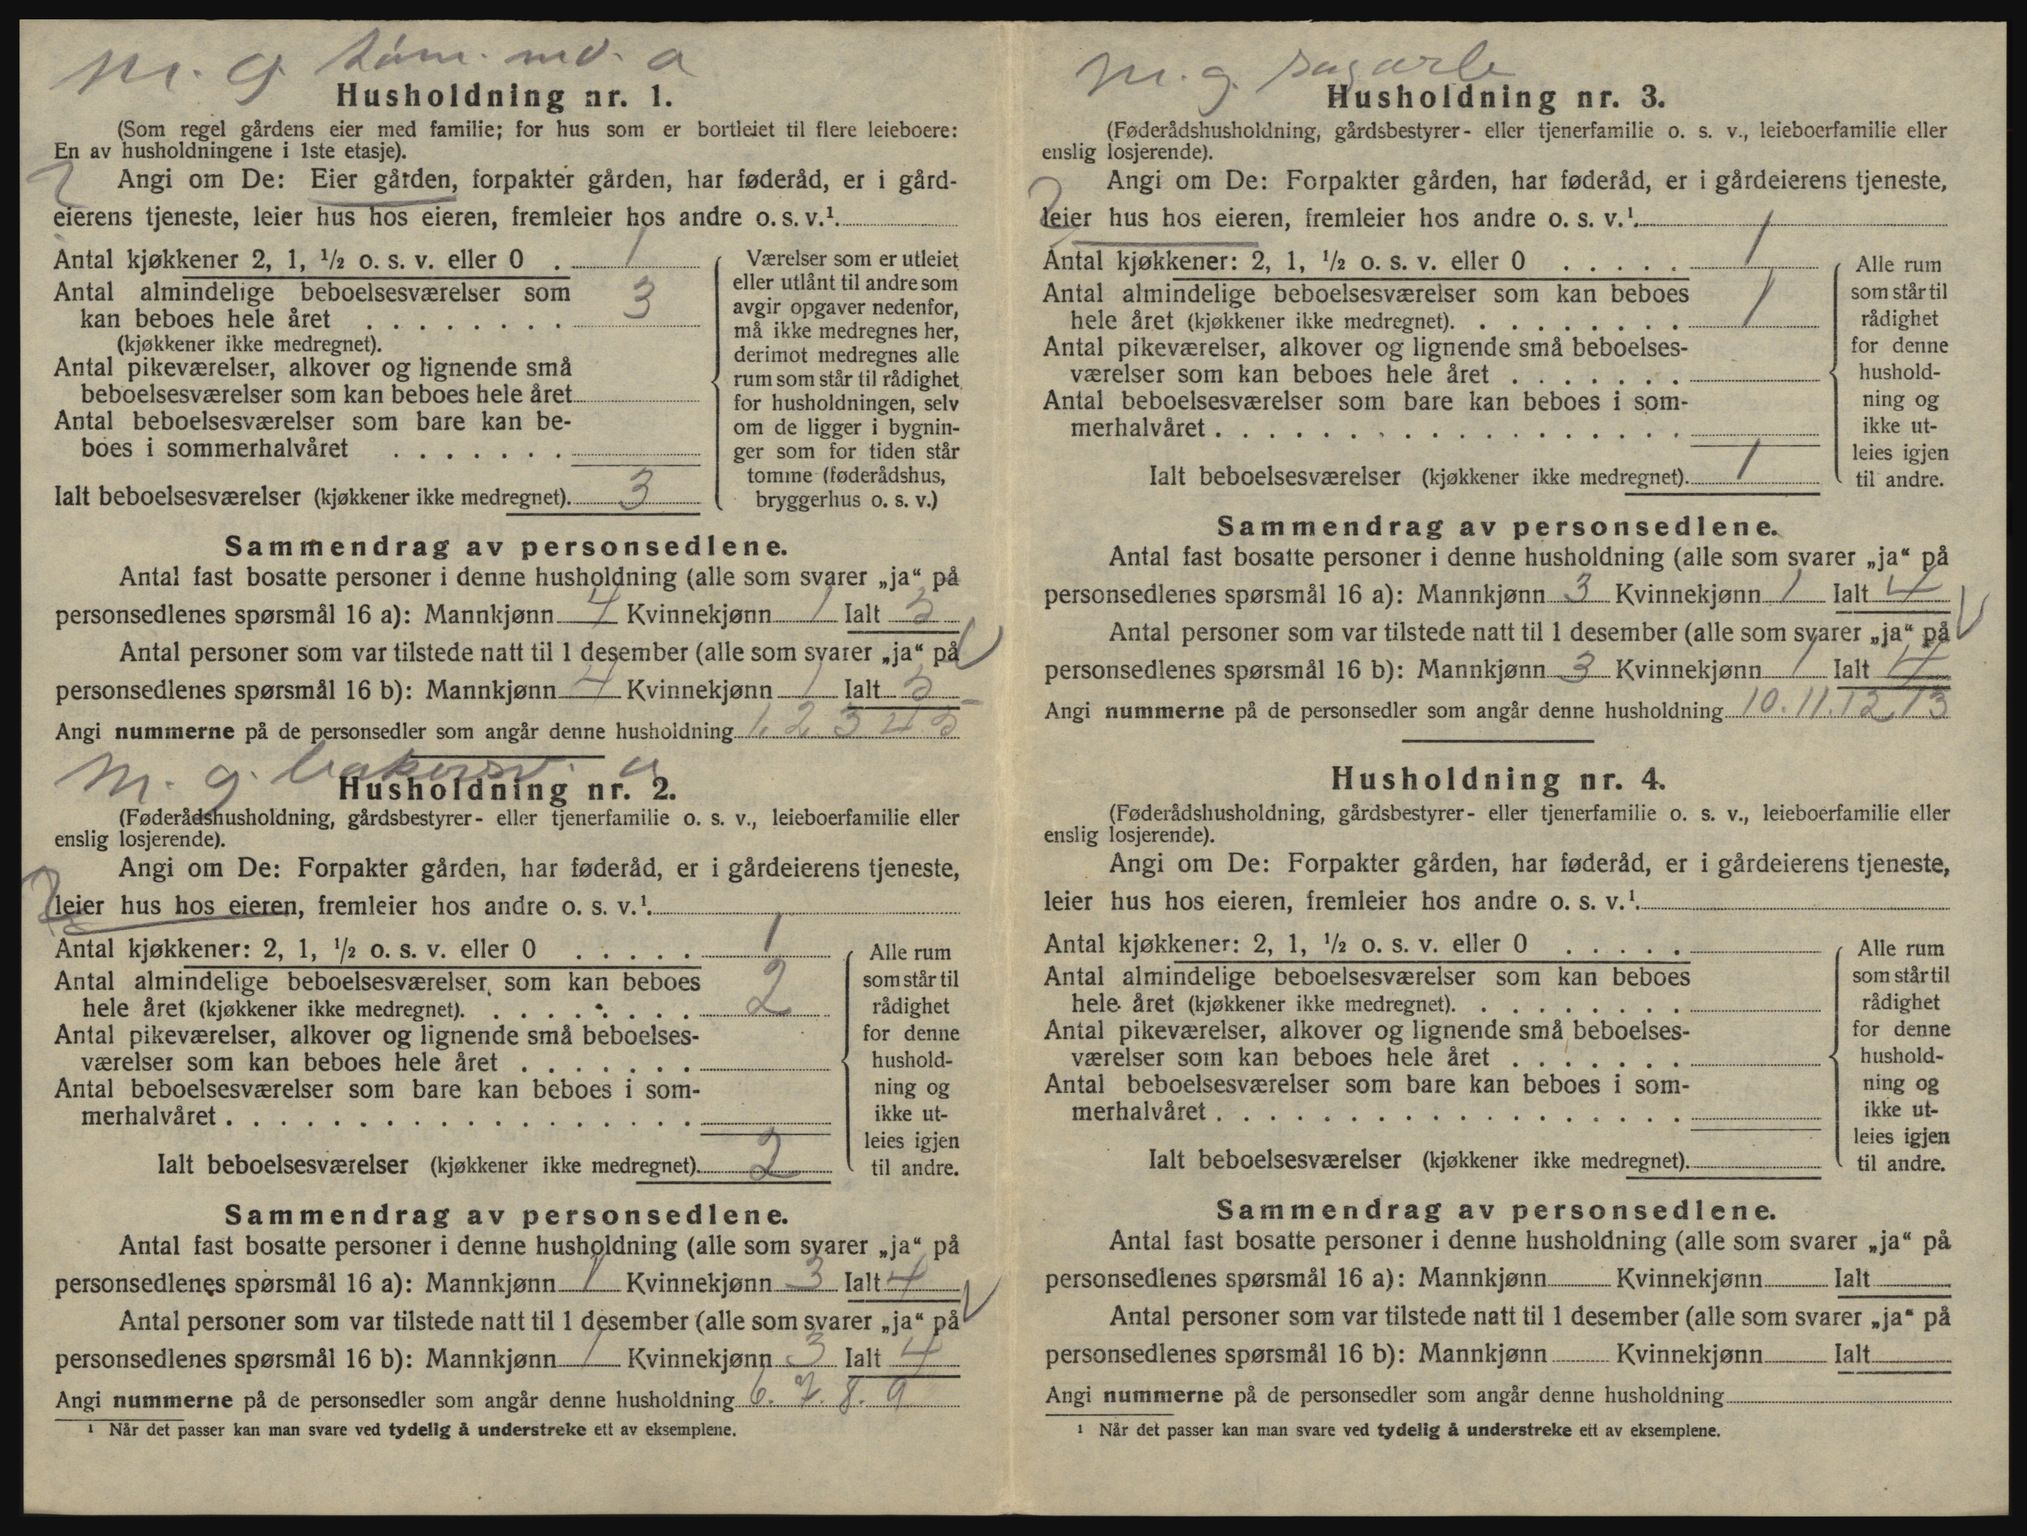 m. g. tøm. md. a
Husholdning nr. 1.
(Som regel gårdens eier med familie; for hus som er bortleiet til flere leieboere:
En av husholdningene i 1ste etasje).
Angi om De: Eier gården, forpakter gården, har føderåd, er i gård-
eierens tjeneste, leier hus hos eieren, fremleier hos andre o. s. v.¹.
Antal kjøkkener 2, 1, ½ o. s. v. eller 0 . 1
Antal almindelige beboelsesværelser som
kan beboes hele året . . . . . . . . 3
(kjøkkener ikke medregnet).
Antal pikeværelser, alkover og lignende små
beboelsesværelser som kan beboes hele året
Antal beboelsesværelser som bare kan be-
boes i sommerhalvåret . . . . . . .
Ialt beboelsesværelser (kjøkkener ikke medregnet). 3
Værelser som er utleiet
eller utlånt til andre som
avgir opgaver nedenfor,
må ikke medregnes her,
derimot medregnes alle
rum som står til rådighet
for husholdningen, selv
om de ligger i bygnin-
ger som for tiden står
tomme (føderådshus,
bryggerhus o. s. v.)
Sammendrag av personsedlene.
Antal fast bosatte personer i denne husholdning (alle som svarer „ja“ på
personsedlenes spørsmål 16 a): Mannkjønn 4 Kvinnekjønn 1 Ialt 5
Antal personer som var tilstede natt til 1 desember (alle som svarer „ja“ på
personsedlenes spørsmål 16 b): Mannkjønn 4 Kvinnekjønn 1 Ialt 5
Angi nummerne på de personsedler som angår denne husholdning 1, 2 3 4 5
m. g.
Husholdning nr. 2.
(Føderådshusholdning, gårdsbestyrer- eller tjenerfamilie o. s. v., leieboerfamilie eller
enslig losjerende).
Angi om De: Forpakter gården, har føderåd, er i gårdeierens tjeneste,
leier hus hos eieren, fremleier hos andre o. s. v.¹.
Antal kjøkkener: 2, 1, ½ o. s. v. eller 0 . . . . . 1
Antal almindelige beboelsesværelser som kan beboes
hele året (kjøkkener ikke medregnet). . . . . . . . . 2
Antal pikeværelser, alkover og lignende små beboelses-
værelser som kan beboes hele året . . . . . . .
Antal beboelsesværelser som bare kan beboes i som-
merhalvåret . . . . . . . . . . . . . . . . . .
Ialt beboelsesværelser (kjøkkener ikke medregnet). 2
Alle rum
som står til
rådighet
for denne
hushold-
ning og
ikke ut-
leies igjen
til andre.
Sammendrag av personsedlene.
Antal fast bosatte personer i denne husholdning (alle som svarer „ja“ på
personsedlenes spørsmål 16 a): Mannkjønn 1 Kvinnekjønn 3 Ialt 4
Antal personer som var tilstede natt til 1 desember (alle som svarer „ja“ på
personsedlenes spørsmål 16 b): Mannkjønn 1 Kvinnekjønn 3 Ialt 4
Angi nummerne på de personsedler som angår denne husholdning 6. 7. 8. 9
¹ Når det passer kan man svare ved tydelig å understreke ett av eksemplene.
m. g. sagarb
Husholdning nr. 3.
(Føderådshusholdning, gårdsbestyrer- eller tjenerfamilie o. s. v., leieboerfamilie eller
enslig losjerende).
Angi om De: Forpakter gården, har føderåd, er i gårdeierens tjeneste,
leier hus hos eieren, fremleier hos andre o. s. v.¹.
Antal kjøkkener: 2, 1, ½ o. s. v. eller 0 . . . . . 1
Antal almindelige beboelsesværelser som kan beboes
hele året (kjøkkener ikke medregnet). . . . . . . . . 1
Antal pikeværelser, alkover og lignende små beboelses-
værelser som kan beboes hele året . . . . . . .
Antal beboelsesværelser som bare kan beboes i som-
merhalvåret . . . . . . . . . . . . . . . . . .
Ialt beboelsesværelser (kjøkkener ikke medregnet). 1
Alle rum
som står til
rådighet
for denne
hushold-
ning og
ikke ut-
leies igjen
til andre.
Sammendrag av personsedlene.
Antal fast bosatte personer i denne husholdning (alle som svarer „ja“ på
personsedlenes spørsmål 16 a): Mannkjønn 3 Kvinnekjønn 1 Ialt 4
Antal personer som var tilstede natt til 1 desember (alle som svarer „ja“ på
personsedlenes spørsmål 16 b): Mannkjønn 3 Kvinnekjønn 1 Ialt 4
Angi nummerne på de personsedler som angår denne husholdning 10. 11. 12. 13
Husholdning nr. 4.
(Føderådshusholdning, gårdsbestyrer- eller tjenerfamilie o. s. v., leieboerfamilie eller
enslig losjerende).
Angi om De: Forpakter gården, har føderåd, er i gårdeierens tjeneste,
leier hus hos eieren, fremleier hos andre o. s. v.¹.
Antal kjøkkener: 2, 1, ½ o. s. v. eller 0 . . . . .
Antal almindelige beboelsesværelser som kan beboes
hele året (kjøkkener ikke medregnet). . . . . . . . .
Antal pikeværelser, alkover og lignende små beboelses-
værelser som kan beboes hele året . . . . . . .
Antal beboelsesværelser som bare kan beboes i som-
merhalvåret . . . . . . . . . . . . . . . . . .
Ialt beboelsesværelser (kjøkkener ikke medregnet).
Alle rum
som står til
rådighet
for denne
hushold-
ning og
ikke ut-
leies igjen
til andre.
Sammendrag av personsedlene.
Antal fast bosatte personer i denne husholdning (alle som svarer „ja“ på
personsedlenes spørsmål 16 a): Mannkjønn Kvinnekjønn Ialt
Antal personer som var tilstede natt til 1 desember (alle som svarer „ja“ på
personsedlenes spørsmål 16 b): Mannkjønn Kvinnekjønn Ialt
Angi nummerne på de personsedler som angår denne husholdning
¹ Når det passer kan man svare ved tydelig å understreke ett av eksemplene.